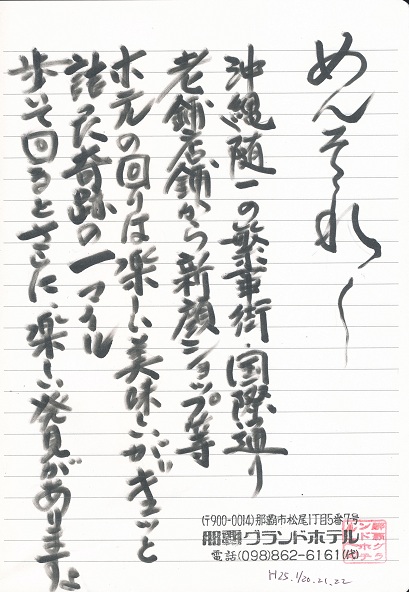 めんそ〜れ〜
沖縄随一の繁華街・国際通り
老舗店舗から新顔ショップ等
ホテルの回りは楽しい美味しいがギュッと
詰った奇跡の一マイル
歩いて回るとさらに、楽しい発見がありますよ
(〒900-0014)那覇市松尾1丁目5番7号
那覇グランドホテル
電話(098)862-6161(代)
那覇グランドホテル
H25.1/20.21.22